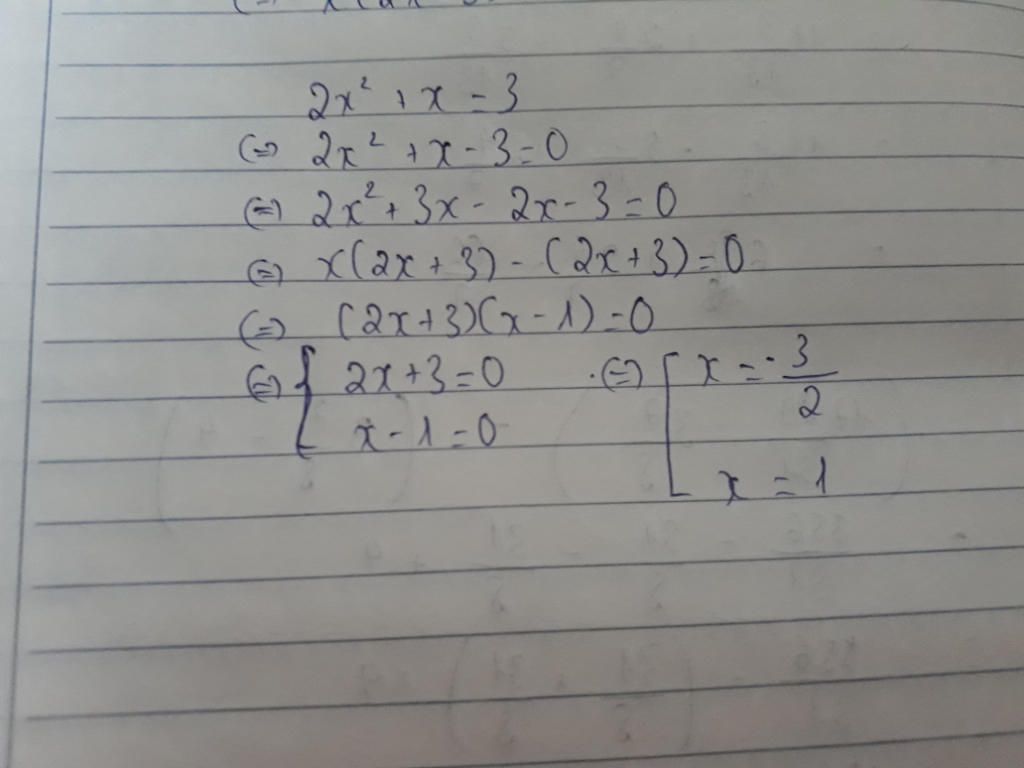 2x² + x = 3
(=) 2x² + x - 3 = 0
(=) 2x² + 3x - 2x - 3 = 0
(=) x(2x + 3) - (2x + 3) = 0
(=) (2x + 3)(x - 1) = 0
(=) { 2x + 3 = 0 (=) [ x = -3/2
x - 1 = 0
x = 1